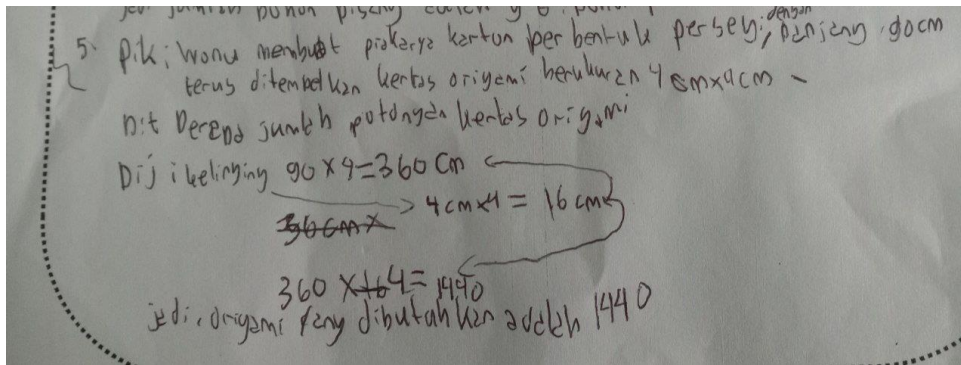 5. Dik; Wonu membuat prakarya karton berbentuk persegi, dengan panjang 90cm
terus ditempelkan kertas origami berukuran 4cmx4cm
Dit Berapa jumlah potongan kertas origami
Dij : kelinging 90x4=360 cm
4cmx4 = 16 cm
36cmx
360 x164=1440
jadi, origami yang dibutuhkan adalah 1440